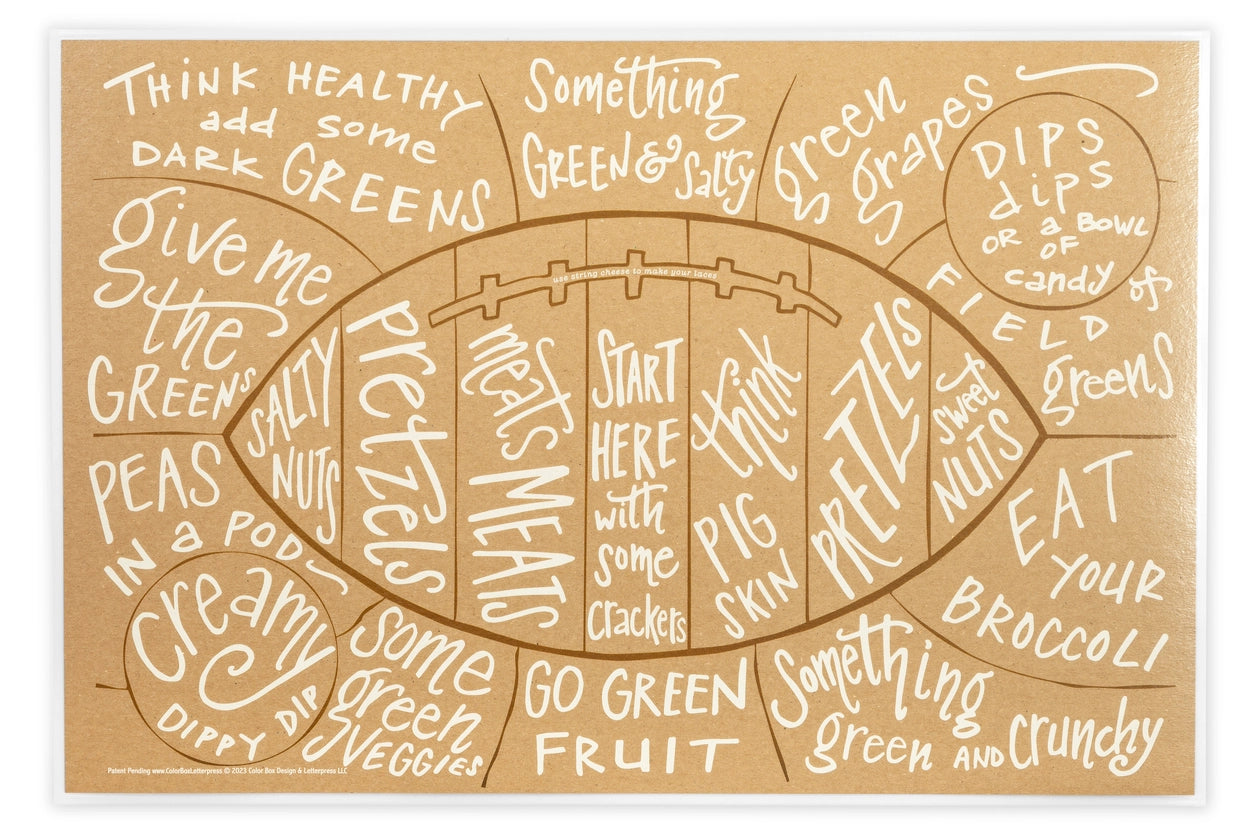 THINK HEALTHY
add some
DARK GREENS
Something
GREEN & Salty
green
grapes
DIPS
dips
OR a BOWL
OF
candy
give me
the
GREENS
use string cheese to make your laces
FIELD of
greens
SALTY
NUTS
Pretzels
meats
MEATS
START
HERE
with
some
crackers
think
PIG
SKIN
PRETZELS
sweet
NUTS
PEAS
IN a PODS
creamy
DIPPY DIP
some
green
VEGGIES
GO GREEN
FRUIT
EAT
YOUR
BROCCOLI
Something
green AND crunchy
Patent Pending www.ColorBoxLetterpress © 2023 Color Box Design & Letterpress LLC